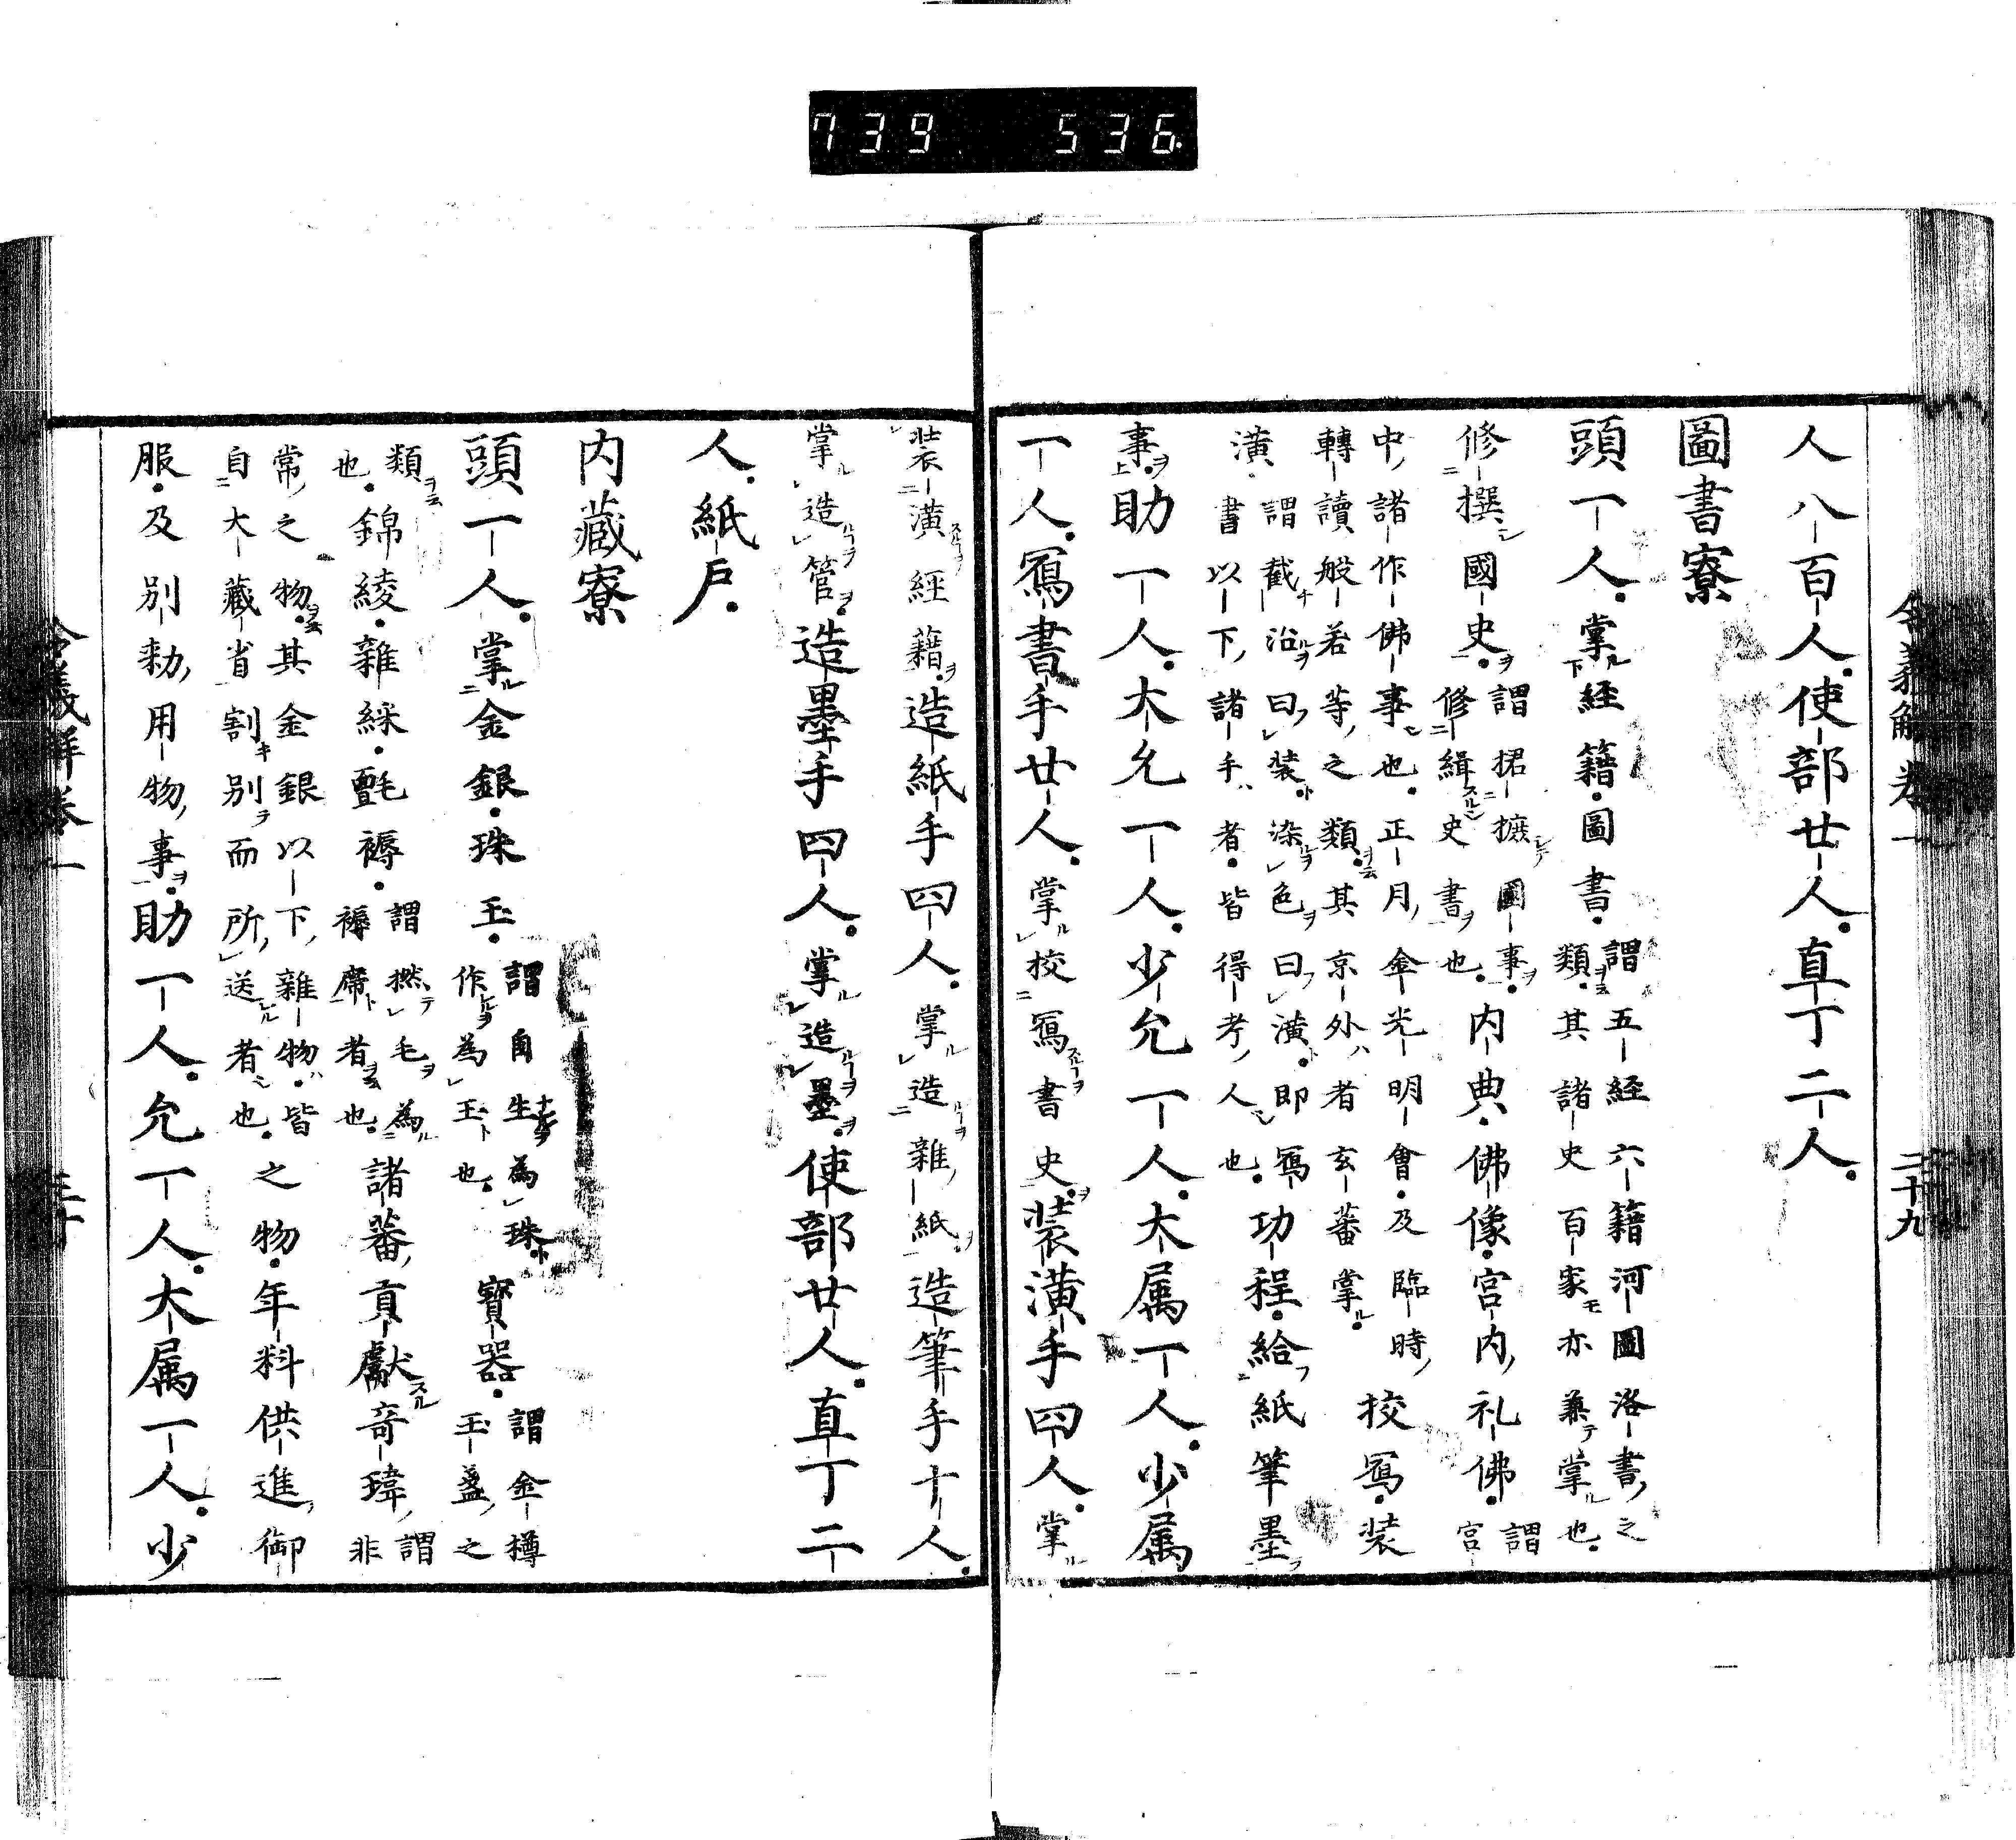 739 536
人八百人使部廿人直丁二人
圖書寮
頭一人掌経籍圖書謂五経六籍河圖洛書之類其諸史百家亦兼掌也
修撰國史謂捃摭國事修緝史書也内典佛像宮内礼佛謂宮
中諸作佛事也正月金光明會及臨時轉讀般若等之類其京外者玄蕃掌挍寫装
潢謂截治曰装染色曰潢即寫書以下諸手者皆得考人也功程給紙筆墨
事助一人大允一人少允一人大属一人少属
一人寫書手廿人掌挍寫書史装潢手四人掌
装潢經籍造紙手四人掌造雜紙造筆手十人
掌造管造墨手四人掌造墨使部廿人直丁二
人紙戸
内藏寮
頭一人掌金銀珠玉謂自生為珠作為玉也寶器謂金樽玉盞之
類也錦綾雜綵氈褥謂撚毛為褥席者也諸蕃貢獻奇瑋謂非
常之物其金銀以下雜物皆自大藏省割別而所送者也之物年料供進御
服及別勅用物事助一人允一人大属一人少
令義解卷一 二十九
令義解卷一 三十